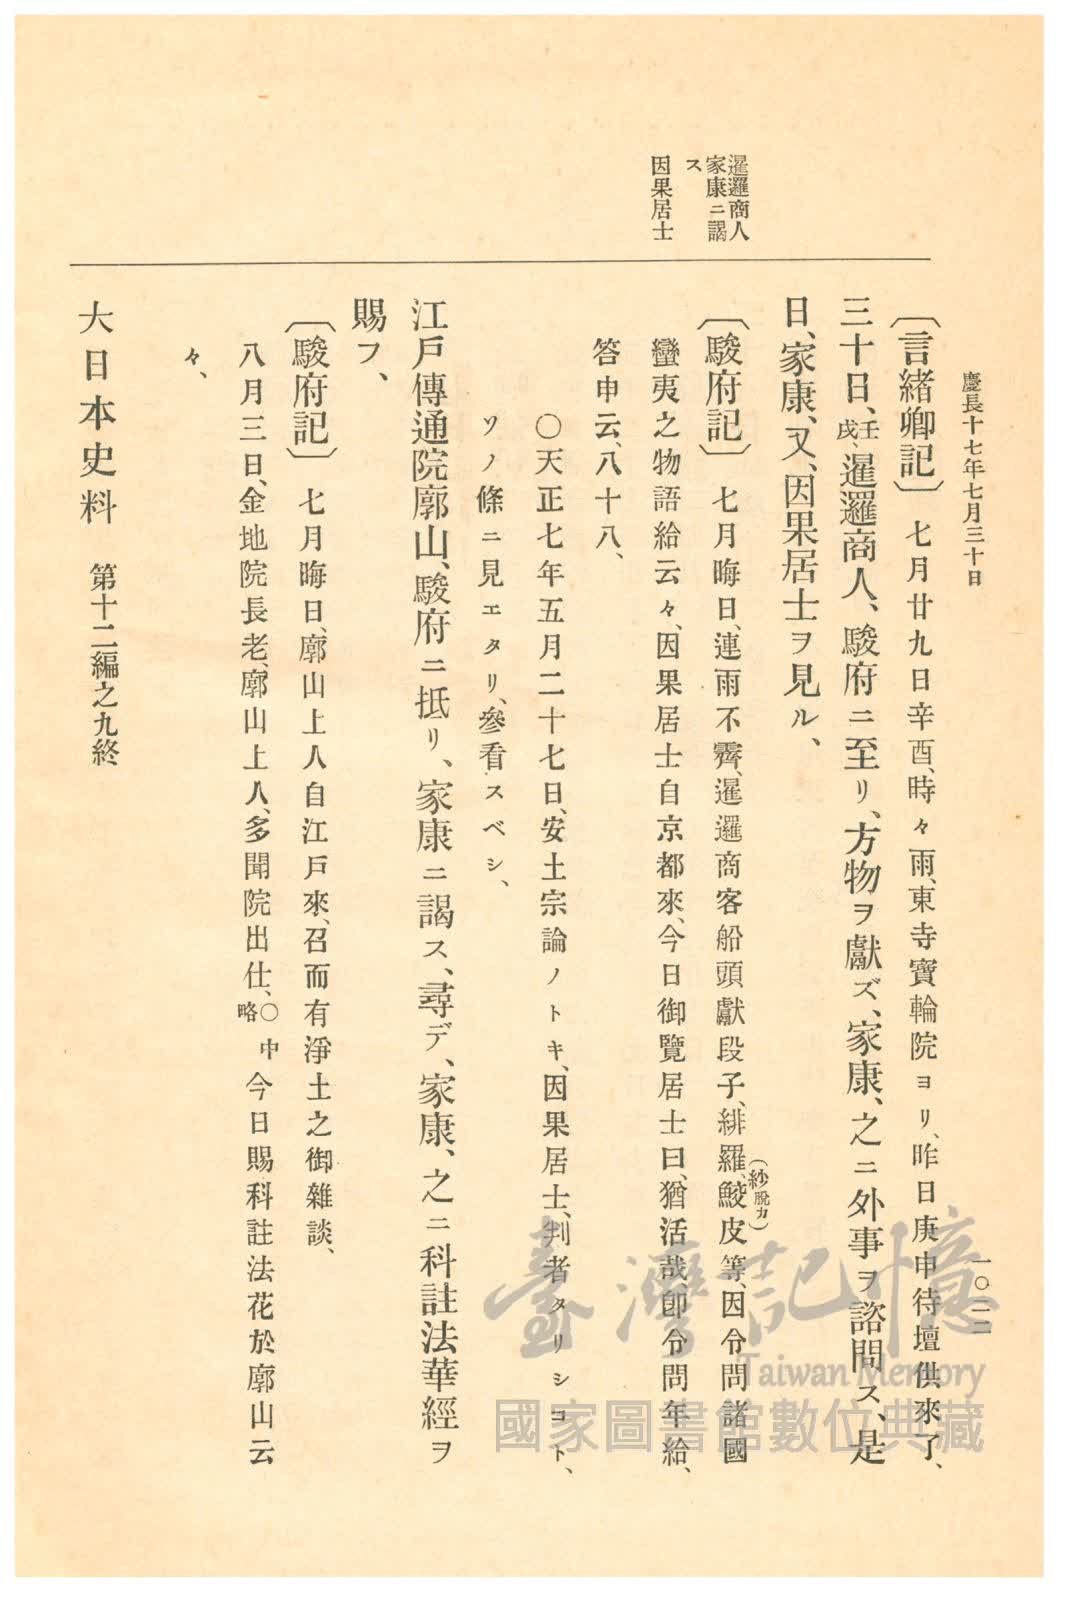 慶長十七年七月三十日
一〇二二
暹羅商人
家康ニ謁
ス
因果居士
〔言緒卿記〕　七月廿九日辛酉、時々雨、東寺寶輪院ヨリ、昨日庚申待壇供來了、
三十日、壬戌、暹羅商人、駿府ニ至リ、方物ヲ獻ズ、家康、之ニ外事ヲ諮問ス、是
日、家康、又、因果居士ヲ見ル、
〔駿府記〕　七月晦日、連雨不霽、暹邏商客船頭獻段子、緋羅、(紗脫カ)鮫皮等、因令問諸國
蠻夷之物語給云々、因果居士自京都來、今日御覽居士曰、猶活哉、卽令問年給、
答申云、八十八、
〇天正七年五月二十七日、安土宗論ノトキ、因果居士、判者タリシコト、
ソノ條ニ見エタリ、參看スベシ、
江戶傳通院廓山、駿府ニ抵リ、家康ニ謁ス、尋デ、家康、之ニ科註法華經ヲ
賜フ、
〔駿府記〕　七月晦日、廓山上人自江戶來、召而有淨土之御雜談、
八月三日、金地院長老、廓山上人、多聞院出仕、〇中略今日賜科註法花於廓山云
々、
大日本史料　第十二編之九終
臺灣記憶
Taiwan Memory
國家圖書館數位典藏